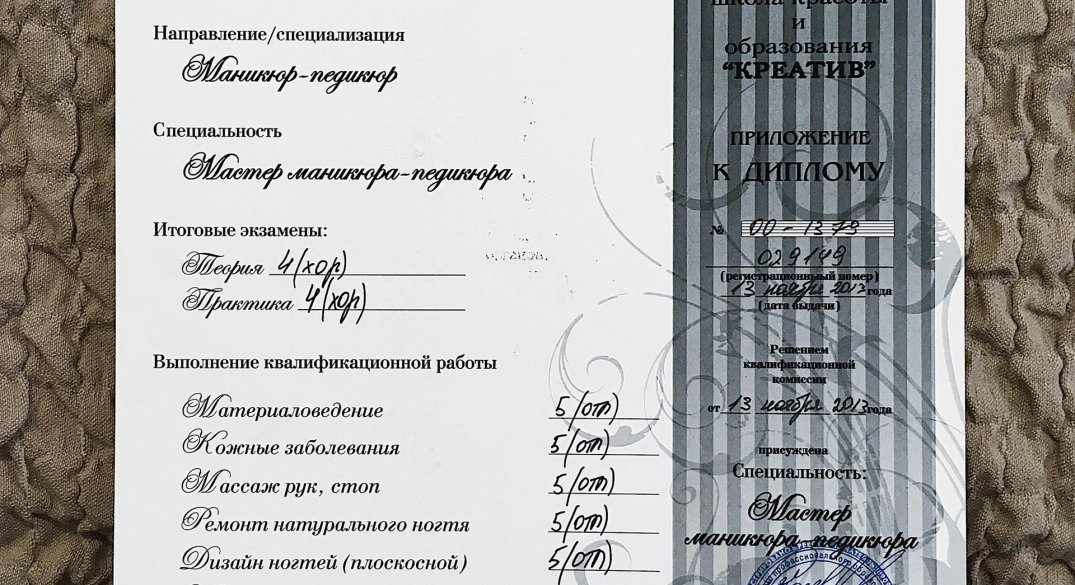 Направление/специализация
Маникюр-педикюр
Специальность
Мастер маникюра-педикюра
Итоговые экзамены:
Теория 4 (хор)
Практика 4 (хор)
Выполнение квалификационной работы
Материаловедение 5 (отл)
Кожные заболевания 5 (отл)
Массаж рук, стоп 5 (отл)
Ремонт натурального ногтя 5 (отл)
Дизайн ногтей (плоскосной) 5 (отл)
школа красоты
и
образования
"КРЕАТИВ"
ПРИЛОЖЕНИЕ
К ДИПЛОМУ
№ 00-1379
029149
(регистрационный номер)
13 ноября 2013 года
(дата выдачи)
Решением
квалификационной
комиссии
от 13 ноября 2013 года
присуждена
Специальность:
Мастер
маникюра, педикюра